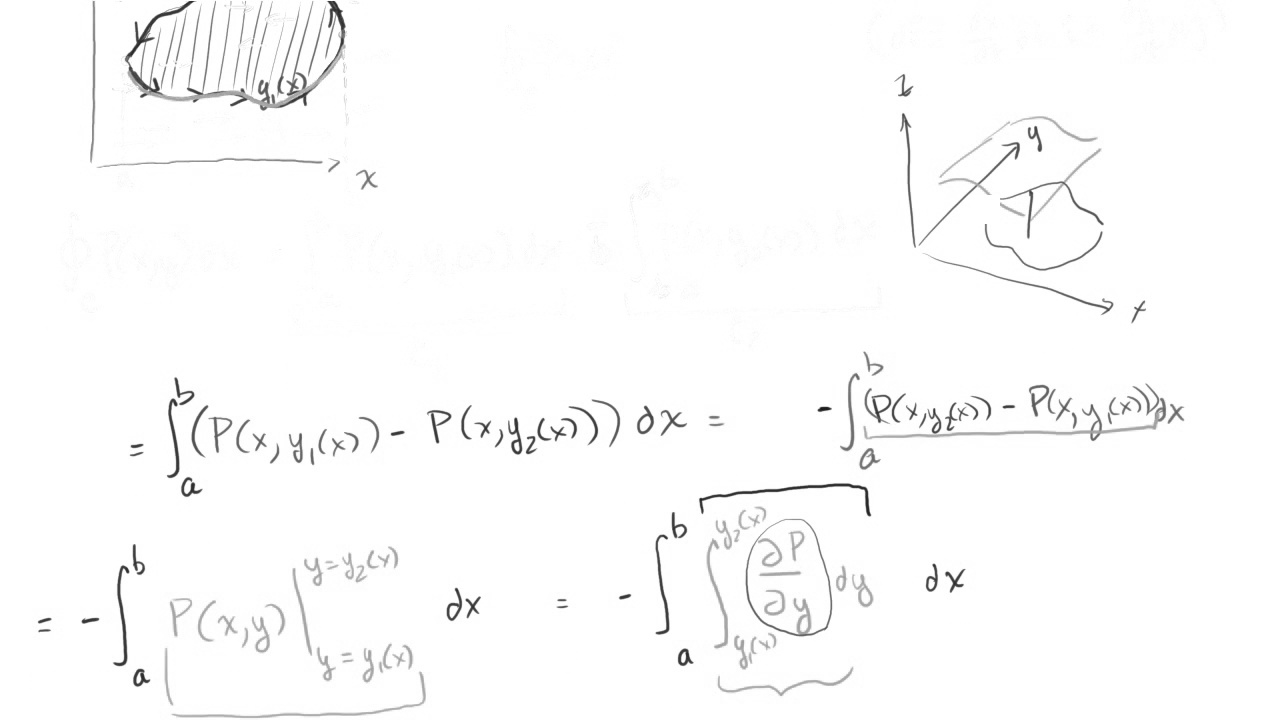 y₁(x)
x
z
y
x
= ∫ₐᵇ (P(x, y₁(x)) - P(x, y₂(x))) dx = - ∫ₐᵇ (P(x, y₂(x)) - P(x, y₁(x))) dx
= - ∫ₐᵇ P(x,y) |_{y = y₁(x)}^{y = y₂(x)} dx = - ∫ₐᵇ ∫_{y₁(x)}^{y₂(x)} ∂P/∂y dy dx